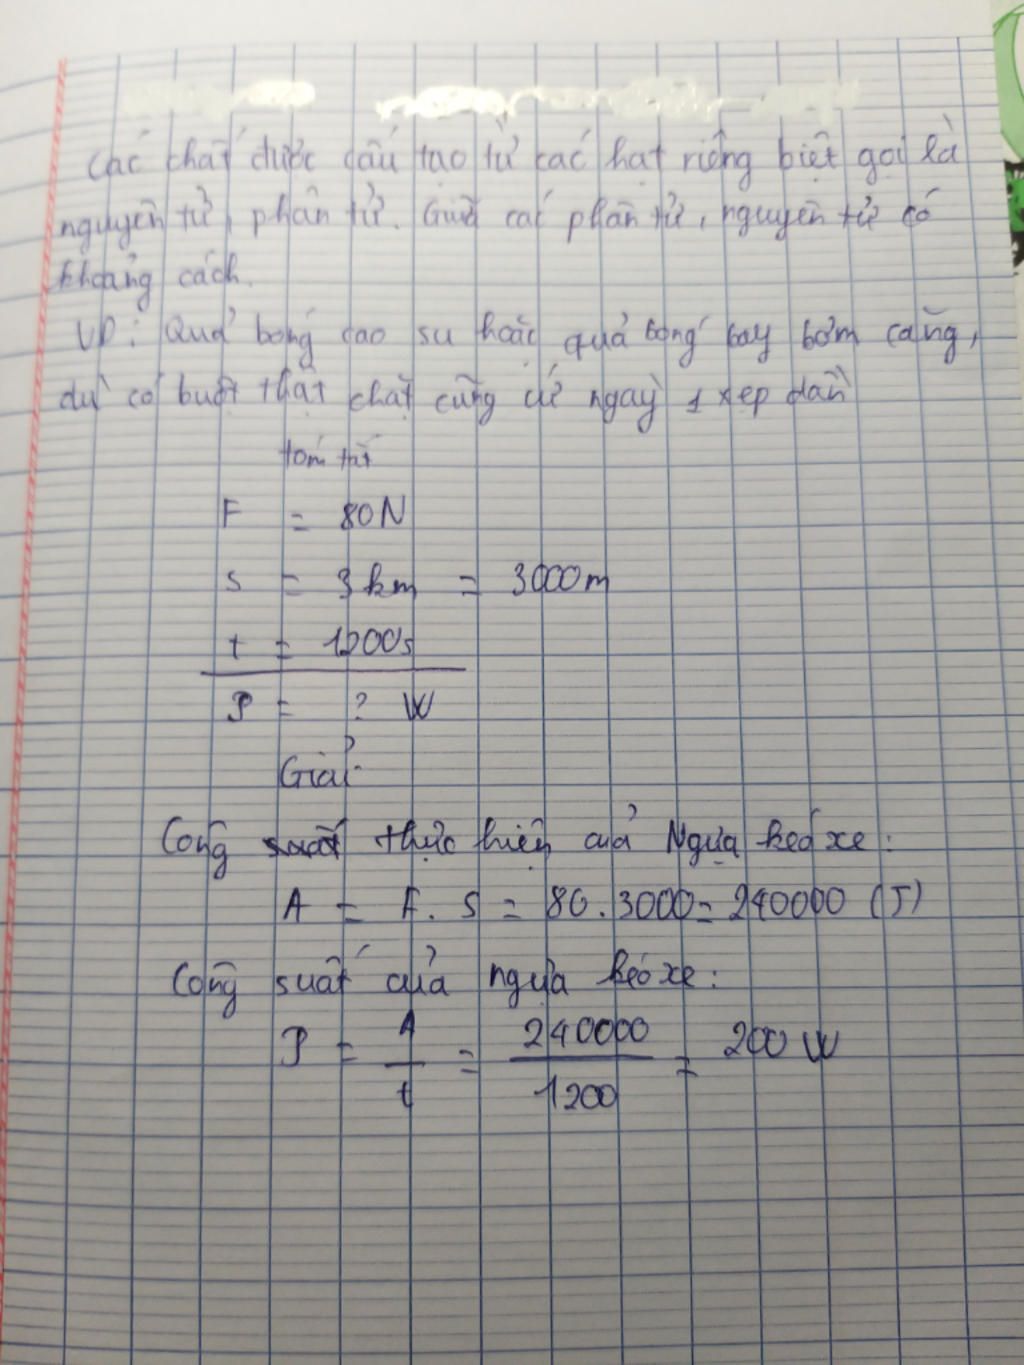 Các chất được cấu tạo từ các hạt riêng biệt gọi là
nguyên tử, phân tử. Giữa các phân tử, nguyên tử có
khoảng cách.
VD: Quả bóng cao su hoặc quả bóng bay bơm căng,
dù có buột thật chặt cũng cứ ngày 1 xẹp dần
tóm tắt
F = 80N
s = 3km = 3000m
t = 1200s
P = ? W
Giải
Công thực hiện của Ngựa kéo xe:
A = F. S = 80.3000 = 240000 (J)
Công suất của ngựa kéo xe:
P = A/t = 240000/1200 = 200 W